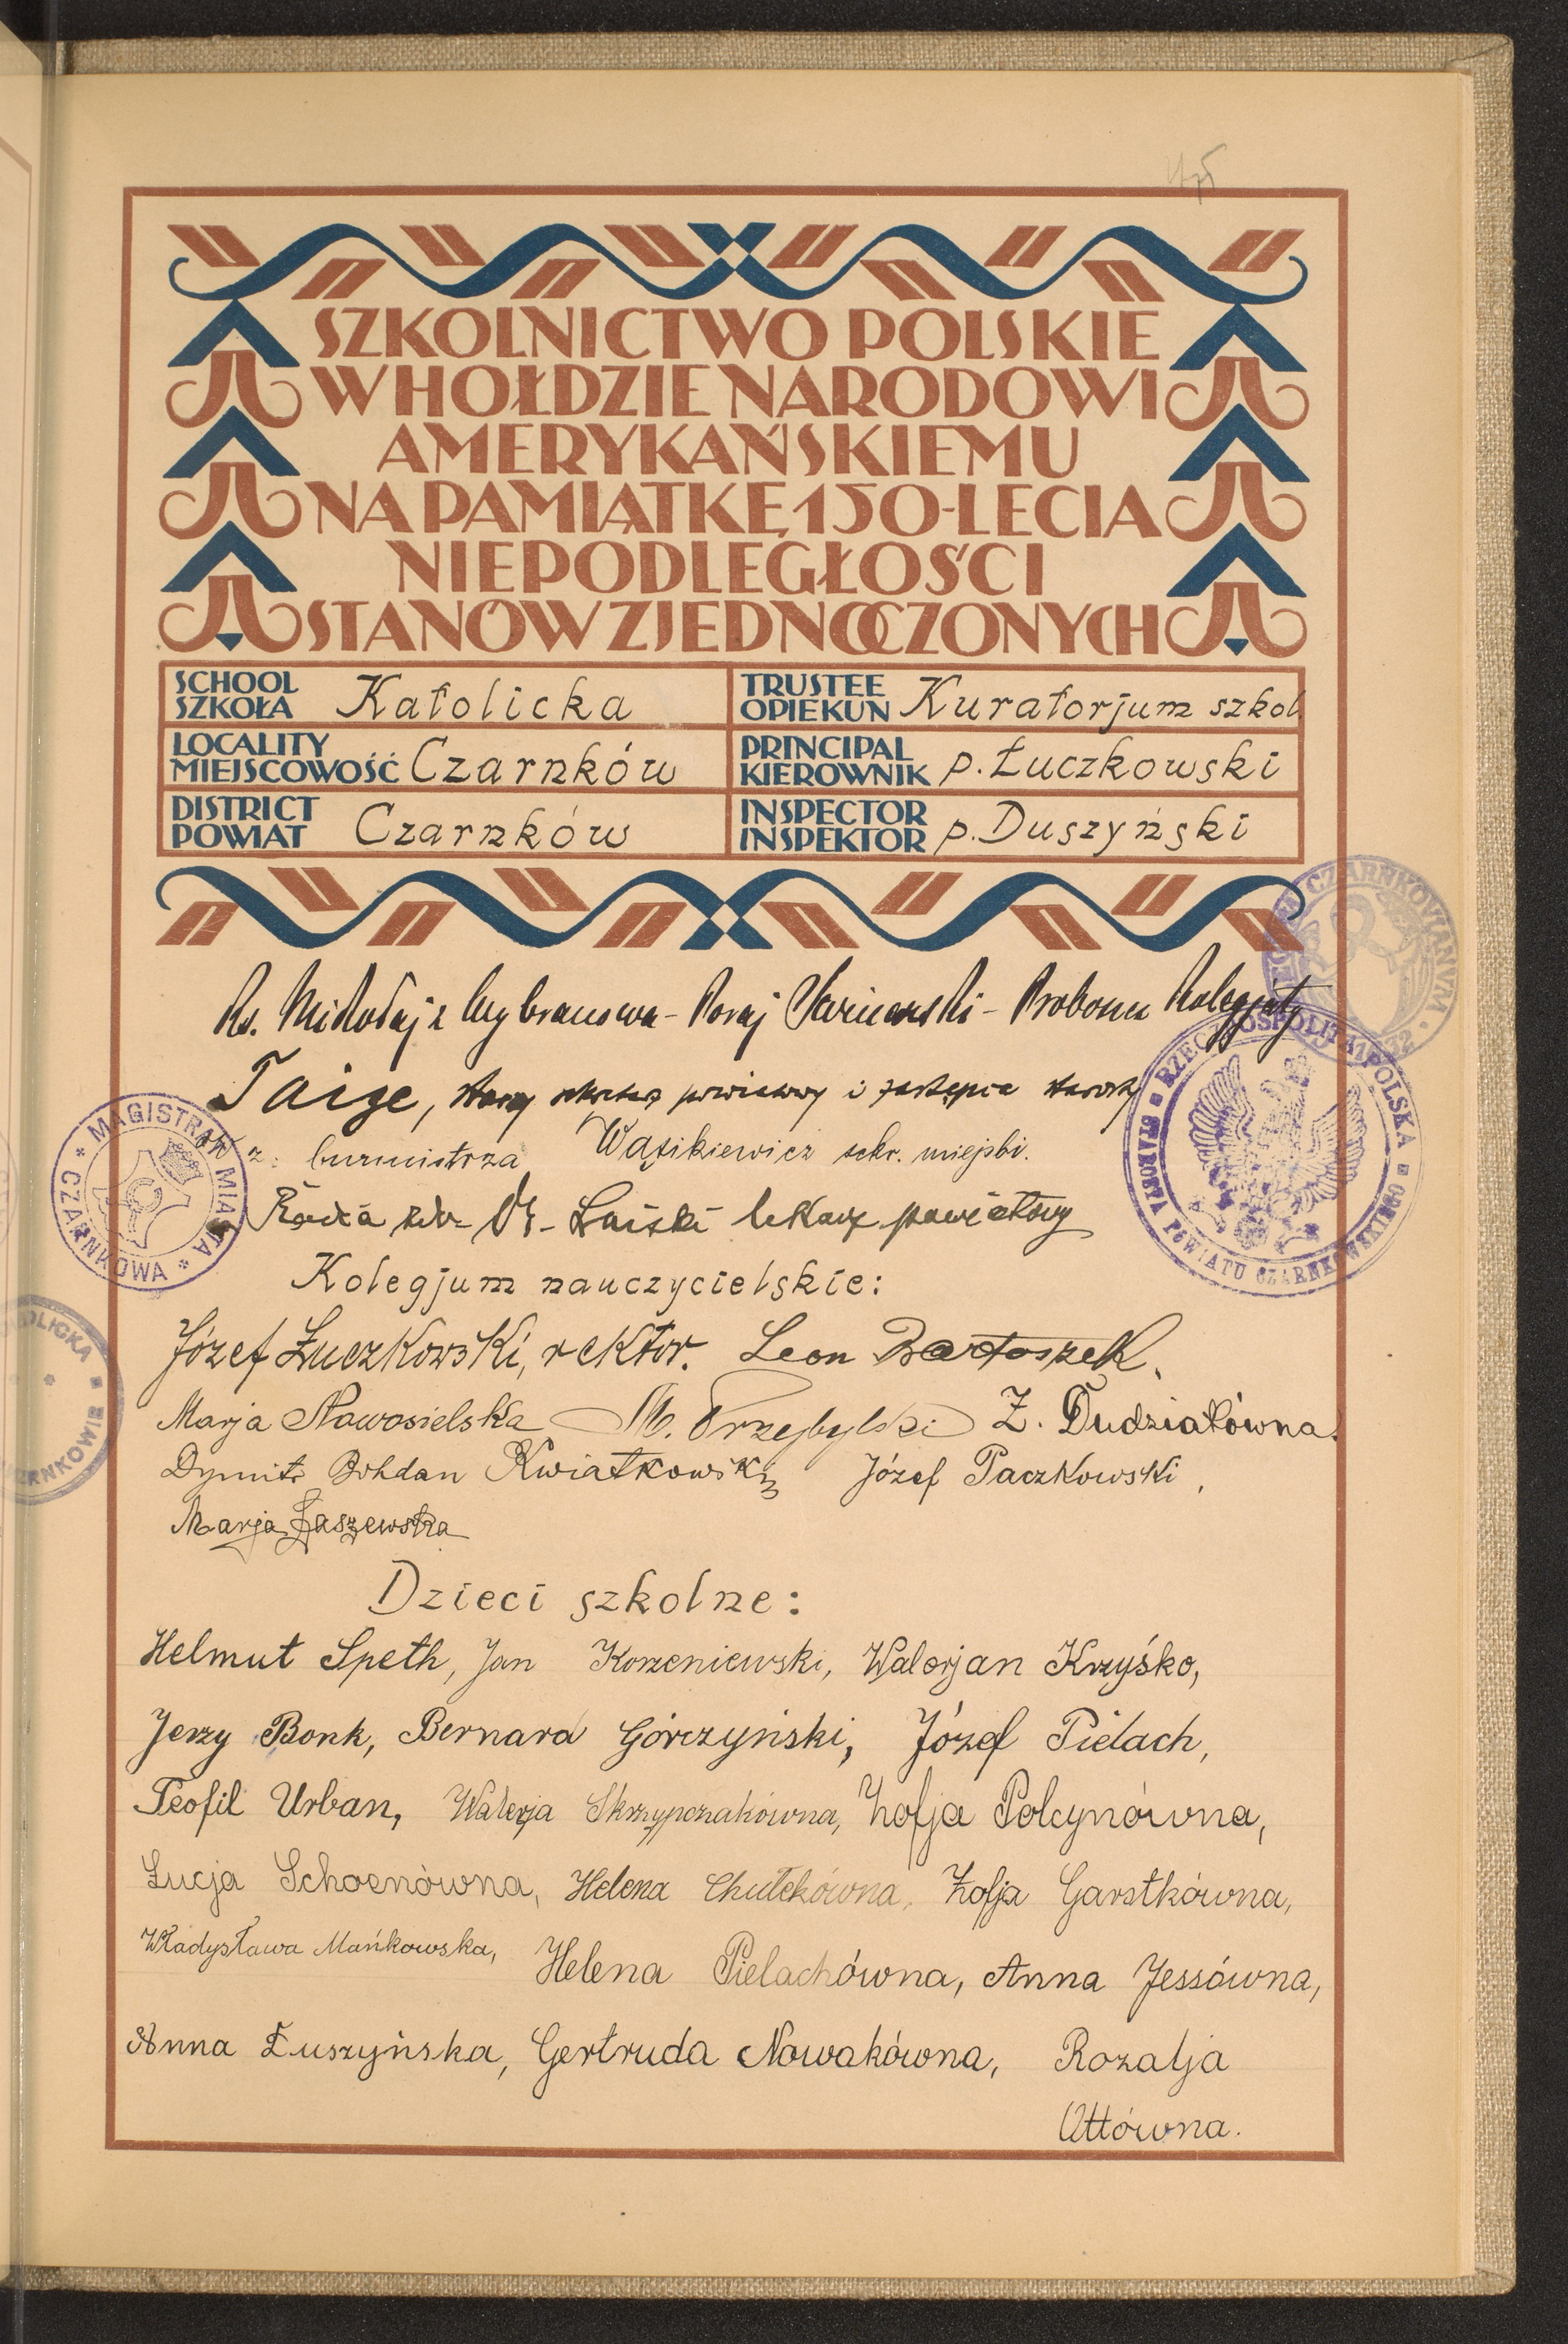 SZKOLNICTWO POLSKIE
W HOŁDZIE NARODOWI
AMERYKAŃSKIEMU
NA PAMIĄTKĘ 150-LECIA
NIEPODLEGŁOŚCI
STANÓW ZJEDNOCZONYCH
SCHOOL SZKOŁA Katolicka
TRUSTEE OPIEKUN Kuratorjum szkol.
LOCALITY MIEJSCOWOŚĆ Czarnków
PRINCIPAL KIEROWNIK p. Łuczkowski
DISTRICT POWIAT Czarnków
INSPECTOR INSPEKTOR p. Duszyński
Ks. Mikołaj z - Poraj - Proboszcz Kolegjaty
Taige, powiatowy i zastępca starosty
z: burmistrza Wasikiewicz sekr. miejski.
Dr. Laiski lekarz powiatowy
Kolegjum nauczycielskie:
Józef Łuczkowski, rektor. Leon Bartoszek.
Marja Nowosielska M. Przybylski Z. Dudziakówna.
Dymitr Bohdan Kwiatkowski Józef Paczkowski,
Marja Łaszewska
Dzieci szkolne:
Helmut Speth, Jan Korzeniewski, Walerjan Krzyśko,
Jerzy Bonk, Bernard Górczyński, Józef Pielach,
Teofil Urban, Walerja Skrzypczakówna, Zofja Polcynówna,
Łucja Schoenówna, Helena Chutekówna, Zofja Garstkówna,
Władysława Mańkowska, Helena Pielachówna, Anna Jessówna,
Anna Łuszyńska, Gertruda Nowakówna, Rozalja
Ottówna.
MAGISTRAT MIASTA CZARNKOWA
RZECZPOSPOLITA POLSKA
STAROSTA POWIATU CZARNKOWSKIEGO